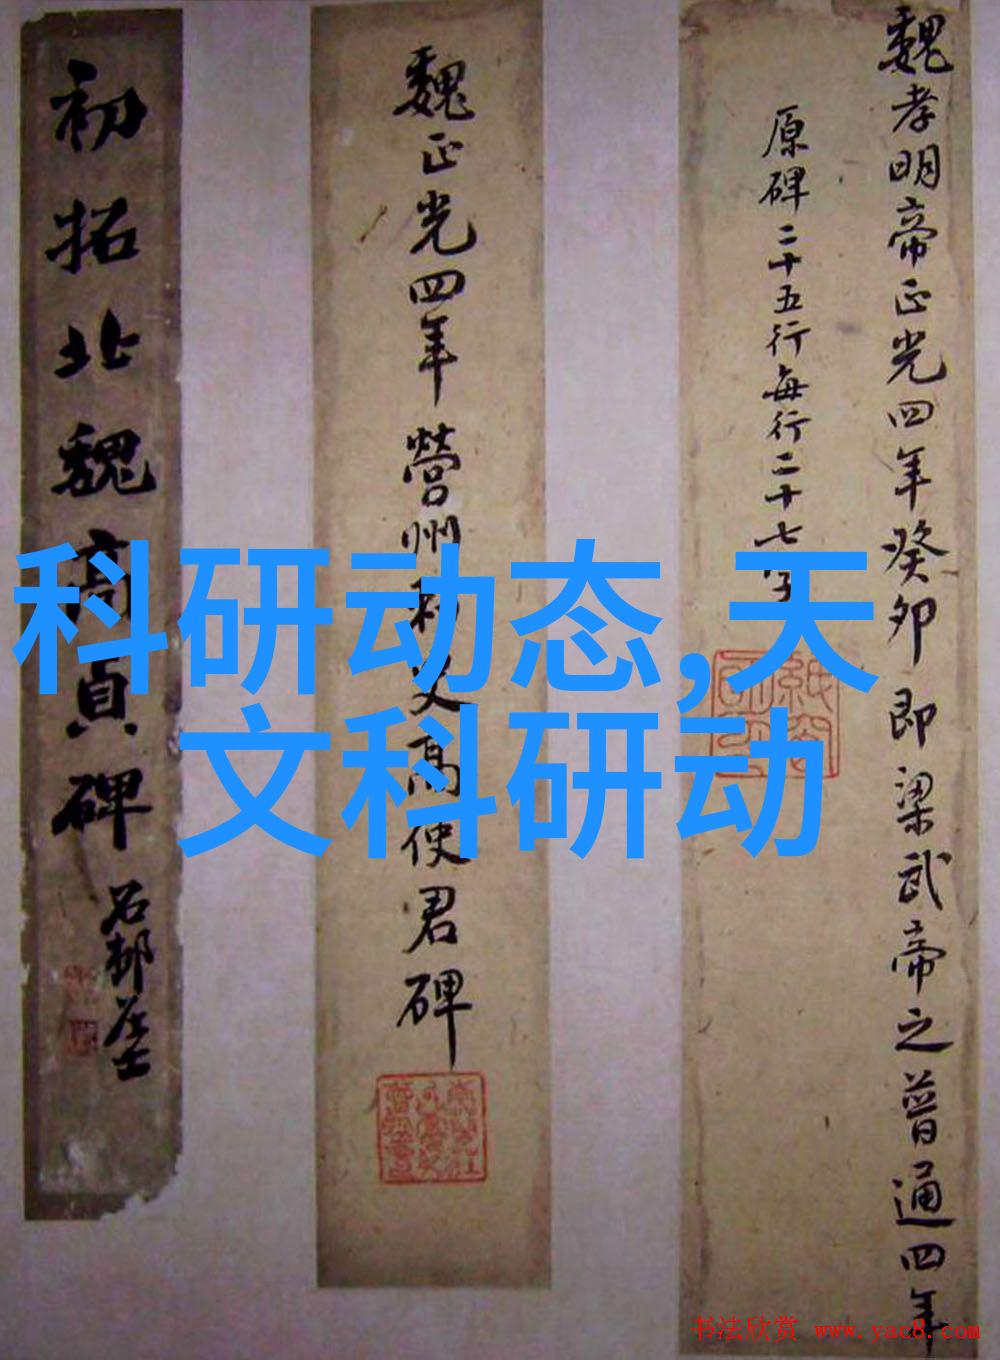 魏孝明帝正光四年癸卯即梁武帝之普通四年
原碑二十五行每行二十七字
魏正光四年营州刺史高使君碑
初拓北魏高貞碑
石邨居士
科研动态,天
文科研动
书法欣赏 www.yac8.com